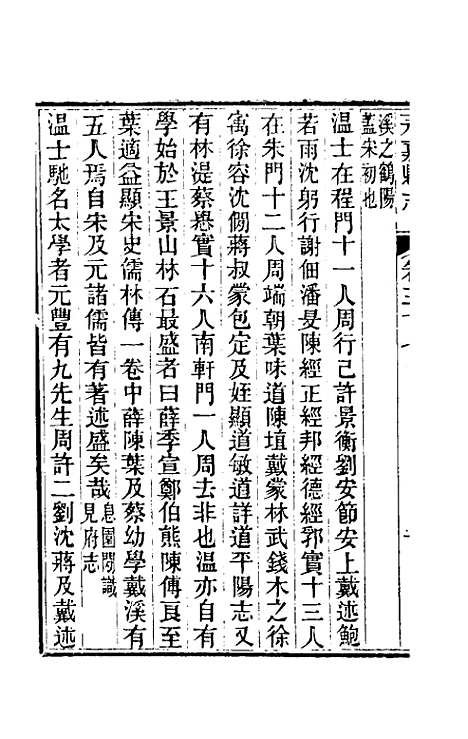 溪之鶴陽
蓋宋初也
温士在程門十一人周行己許景衡劉安節安上戴述鮑
若雨沈躬行謝佃潘旻陳經正經邦經德經郭實十三人
在朱門十二人周端朝葉味道陳埴戴蒙林武錢木之徐
寓徐容沈僩蔣叔蒙包定及姪顯道敏道詳道平陽志又
有林湜蔡懋實十六人南軒門一人周去非也温亦自有
學始於王景山林石最盛者曰薛季宣鄭伯熊陳傅良至
葉適益顯宋史儒林傳一卷中薛陳葉及蔡幼學戴溪有
五人焉自宋及元諸儒皆有著述盛矣哉
息園閒識
見府志
温士馳名太學者元豐有九先生周許二劉沈蔣及戴述